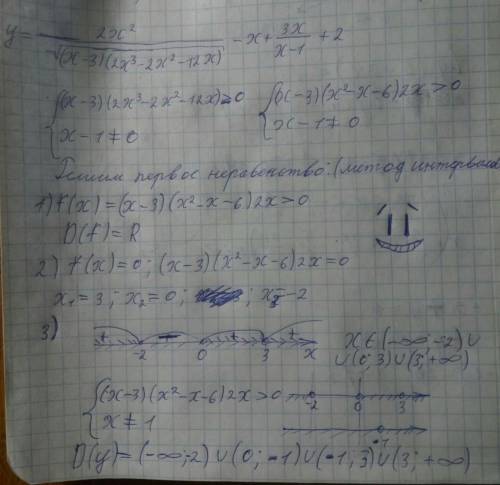 y = 2x² / √((x-3)(2x³-2x²-12x)) - x + 3x/(x-1) + 2
{(x-3)(2x³-2x²-12x)>0 {(x-3)(x²-x-6)2x>0
{x-1≠0 {x-1≠0
Решим первое неравенство: (метод интервалов
1) f(x)=(x-3)(x²-x-6)2x>0
D(f)=R
2) f(x)=0; (x-3)(x²-x-6)2x=0
x₁=3; x₂=0; x₃=-2
3) + - + + x∈(-∞;-2)∪
-2 0 3 x ∪(0;3)∪(3;+∞)
{(x-3)(x²-x-6)2x>0 -2 0 3
{x≠1 -1
D(y)=(-∞;-2)∪(0;-1)∪(-1;3)∪(3;+∞)